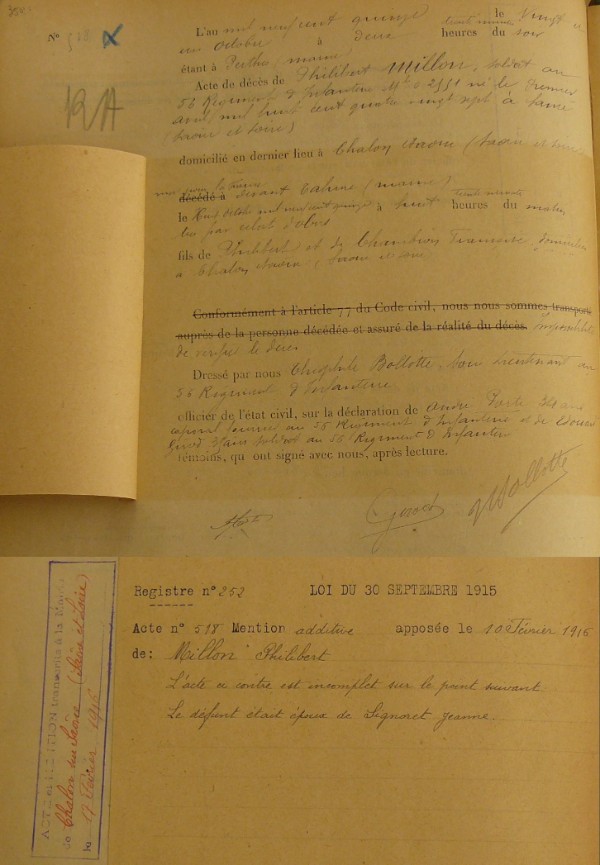 N° 518
L'an mil neuf cent quinze le vingt
octobre à heures du soir
étant à Perthes (marne)
Acte de décès de Philibert Millon, soldat au
56 Régiment d'Infanterie né le premier
avril mil huit cent quatre vingt sept à
(Saône et Loire)
domicilié en dernier lieu à Chalon Saône (Saône et Loire
décédé à devant Tahure (marne)
le octobre mil neuf cent quinze à huit heures du matin
par éclat d'obus
fils de Philibert et de Chambion domiciliés
à Chalon Saône, Saône et Loire
Conformément à l'article 77 du Code civil, nous nous sommes transporté
auprès de la personne décédée et assuré de la réalité du décès. impossibilité
de vérifier le décès
Dressé par nous Théophile Bollotte, sous lieutenant au
56 Régiment d'Infanterie
officier de l'état civil, sur la déclaration de André 34 ans
caporal fourrier au 56 Régiment d'Infanterie et de Edouard
Girod soldat au 56 Régiment d'Infanterie
témoins, qui ont signé avec nous, après lecture.
Girod Bollotte
Registre n° 252 LOI DU 30 SEPTEMBRE 1915
Acte n° 518 Mention additive apposée le 10 Février 1916
de: Millon Philibert
L'acte ci contre est incomplet sur le point suivant
Le défunt était époux de Signoret Jeanne.
transcrits à la Mairie
de Chalon sur Saône (Saône et Loire)
le Février 1916